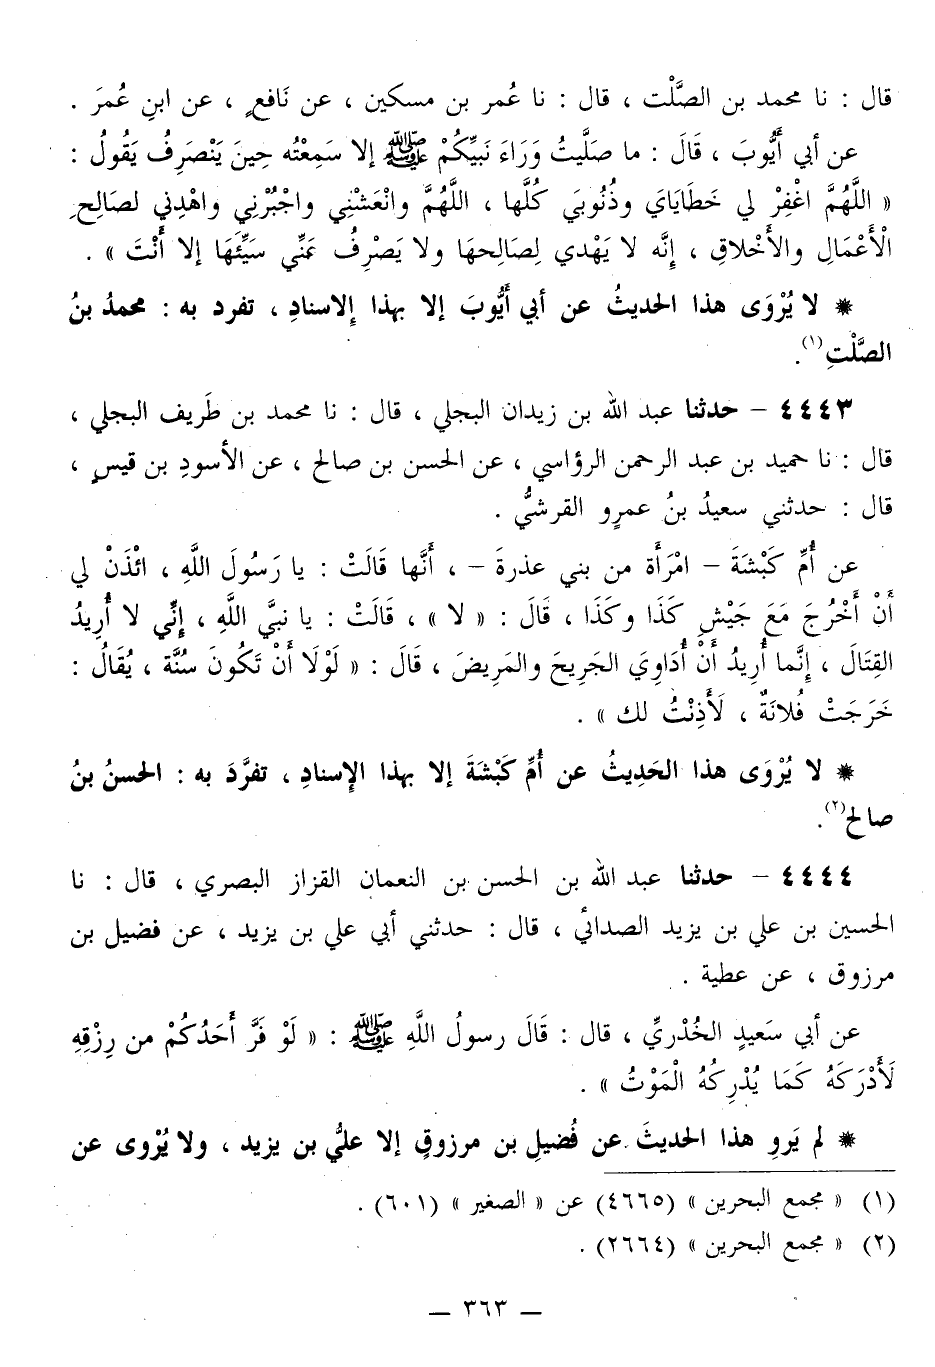 قال : نا محمد بن الصَّلْت ، قال : نا عُمر بن مسكين ، عن نَافعٍ ، عن ابنِ عُمرَ .
عن أبي أَيُّوبَ ، قَالَ : ما صَلَّيتُ وَرَاءَ نَبيِّكُمْ ﷺ إلا سَمِعْتُه حِينَ يَنْصَرِفُ يَقُولُ :
« اللَّهُمَّ اغْفِرْ لي خَطَايَاي وذُنُوبَي كُلَّها ، اللَّهُمَّ وانْعَشْنِي واجْبُرْنِي واهْدِنِي لصَالِحِ
الْأَعْمَالِ والأَخْلاقِ ، إنَّه لا يَهْدي لِصَالِحهَا ولا يَصْرِفُ عَنِّي سَيِّئَهَا إلا أَنْتَ » .
* لا يُرْوَى هذا الحديثُ عن أبي أَيُّوبَ إلا بهذا إلاسنادِ ، تفرد به : محمدُ بنُ
الصَّلْتِ(١).
٤٤٤٣ – حدثنا عبد الله بن زيدان البجلي ، قال : نا محمد بن طَريف البجلي ،
قال : نا حميد بن عبد الرحمن الرؤاسي ، عن الحسن بن صالح ، عن الأسودِ بن قيسٍ ،
قال : حدثني سعيدُ بنُ عمرٍو القرشيُّ .
عن أُمِّ كَبْشَةَ – امْرَأَة من بني عذرةَ – ، أَنَّها قَالَتْ : يا رَسُولَ اللَّهِ ، ائْذَنْ لي
أَنْ أَخْرُجَ مَعَ جَيْشِ كَذَا وكَذَا ، قَالَ : « لا » ، قَالَتْ : يا نبيَّ اللَّهِ ، إنِّي لا أُرِيدُ
القِتَالَ ، إنَّما أُرِيدُ أَنْ أُدَاوِيَ الجَرِيحَ والمَرِيضَ ، قَالَ : « لَوْلَا أَنْ تَكُونَ سُنَّة ، يُقَالُ :
خَرَجَتْ فُلانَةٌ ، لَأَذِنْتُ لك » .
* لا يُرْوَى هذا الحَدِيثُ عن أُمِّ كَبْشَةَ إلا بهذا الإسنادِ ، تفرَّدَ به : الحسنُ بنُ
صالح(٢).
٤٤٤٤ – حدثنا عبد الله بن الحسن بن النعمان القزاز البصري ، قال : نا
الحسين بن علي بن يزيد الصدائي ، قال : حدثني أبي علي بن يزيد ، عن فضيل بن
مرزوق ، عن عطية .
عن أبي سَعيدٍ الخُدْريِّ ، قال : قَالَ رسولُ اللَّهِ ﷺ : « لَوْ فَرَّ أَحَدُكُمْ من رِزْقِهِ
لَأَدْرَكَهُ كَمَا يُدْرِكُهُ الْمَوْتُ » .
* لم يَروِ هذا الحديثَ عن فُضيلِ بن مرزوقٍ إلا عليُّ بن يزيد ، ولا يُرْوى عن
(١) « مجمع البحرين » (٤٦٦٥) عن « الصغير » (٦٠١) .
(٢) « مجمع البحرين » (٢٦٦٤) .
– ٣٦٣ –